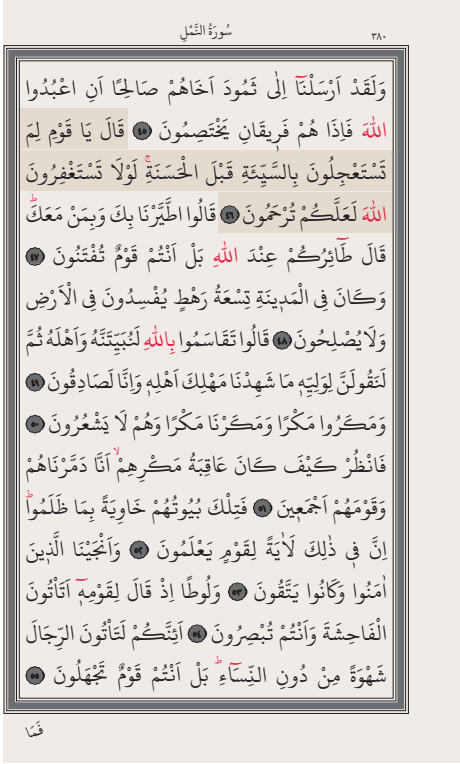 سُورَةُ النَّمْلِ ٣٨٠
وَلَقَدْ اَرْسَلْنَٓا اِلٰى ثَمُودَ اَخَاهُمْ صَالِحًا اَنِ اعْبُدُوا
اللّٰهَ فَاِذَا هُمْ فَر۪يقَانِ يَخْتَصِمُونَ ٤٥ قَالَ يَا قَوْمِ لِمَ
تَسْتَعْجِلُونَ بِالسَّيِّئَةِ قَبْلَ الْحَسَنَةِۚ لَوْلَا تَسْتَغْفِرُونَ
اللّٰهَ لَعَلَّكُمْ تُرْحَمُونَ ٤٦ قَالُوا اطَّيَّرْنَا بِكَ وَبِمَنْ مَعَكَۜ
قَالَ طَٓائِرُكُمْ عِنْدَ اللّٰهِ بَلْ اَنْتُمْ قَوْمٌ تُفْتَنُونَ ٤٧
وَكَانَ فِي الْمَد۪ينَةِ تِسْعَةُ رَهْطٍ يُفْسِدُونَ فِي الْاَرْضِ
وَلَا يُصْلِحُونَ ٤٨ قَالُوا تَقَاسَمُوا بِاللّٰهِ لَنُبَيِّتَنَّهُ وَاَهْلَهُ ثُمَّ
لَنَقُولَنَّ لِوَلِيِّه۪ مَا شَهِدْنَا مَهْلِكَ اَهْلِه۪ وَاِنَّا لَصَادِقُونَ ٤٩
وَمَكَرُوا مَكْرًا وَمَكَرْنَا مَكْرًا وَهُمْ لَا يَشْعُرُونَ ٥٠
فَانْظُرْ كَيْفَ كَانَ عَاقِبَةُ مَكْرِهِمْۙ اَنَّا دَمَّرْنَاهُمْ
وَقَوْمَهُمْ اَجْمَع۪ينَ ٥١ فَتِلْكَ بُيُوتُهُمْ خَاوِيَةً بِمَا ظَلَمُواۜ
اِنَّ ف۪ي ذٰلِكَ لَاٰيَةً لِقَوْمٍ يَعْلَمُونَ ٥٢ وَاَنْجَيْنَا الَّذ۪ينَ
اٰمَنُوا وَكَانُوا يَتَّقُونَ ٥٣ وَلُوطًا اِذْ قَالَ لِقَوْمِه۪ٓ اَتَأْتُونَ
الْفَاحِشَةَ وَاَنْتُمْ تُبْصِرُونَ ٥٤ اَئِنَّكُمْ لَتَأْتُونَ الرِّجَالَ
شَهْوَةً مِنْ دُونِ النِّسَٓاءِۜ بَلْ اَنْتُمْ قَوْمٌ تَجْهَلُونَ ٥٥
فَمَا